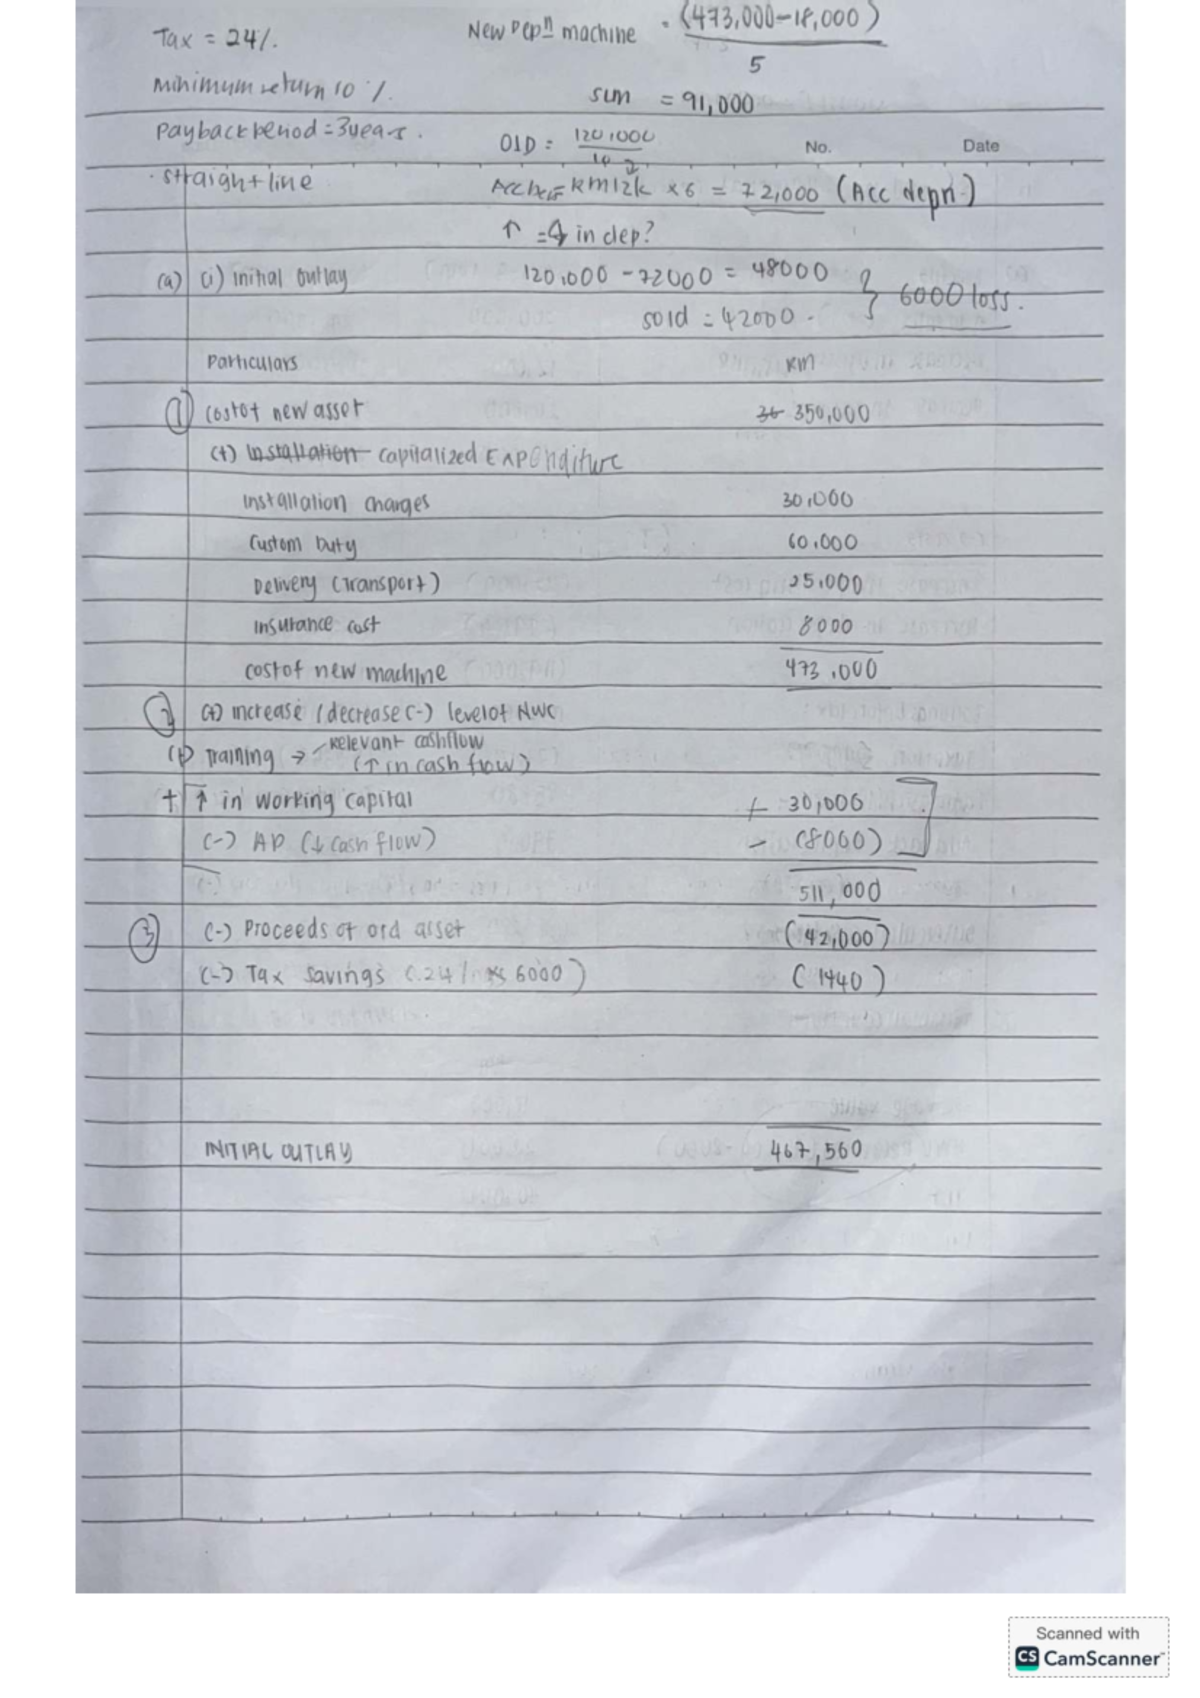 Tax = 24%.
New Depn machine = (473,000-18,000)
5
minimum return 10%.
= 91,000
Payback period = 3 years.
Old = 120,000
10
No. Date
. straight line
RM12k x6 = 72,000 (Acc depn)
↑ = in dep?
(a) (i) initial outlay
120,000 - 72000 = 48000
sold = 42000.
} 6000 loss.
Particulars RM
① cost of new asset 36 350,000
(+) Installation capitalized Expenditure
Installation charges 30,000
Custom Duty 60,000
Delivery (Transport) 25,000
Insurance cost 8000
cost of new machine 473,000
② (+) increase / decrease (-) level of NWC
(+) Training → relevant cashflow
(↑ in cash flow)
+ ↑ in working capital + 30,000
(-) AP (↓ cash flow) - (8000)
511,000
③ (-) Proceeds of old asset (42,000)
(-) Tax savings 6000) (1440)
INITIAL OUTLAY 467,560
Scanned with
CS CamScanner